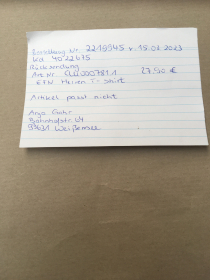 Bestellung Nr. 2219545 v. 15.02.2023
Kd 4022675
Rücksendung
Art.Nr. 27,90 €
Herren T-Shirt
Artikel passt nicht
Anja
Bahnhofstr. 64
99631 Weißensee